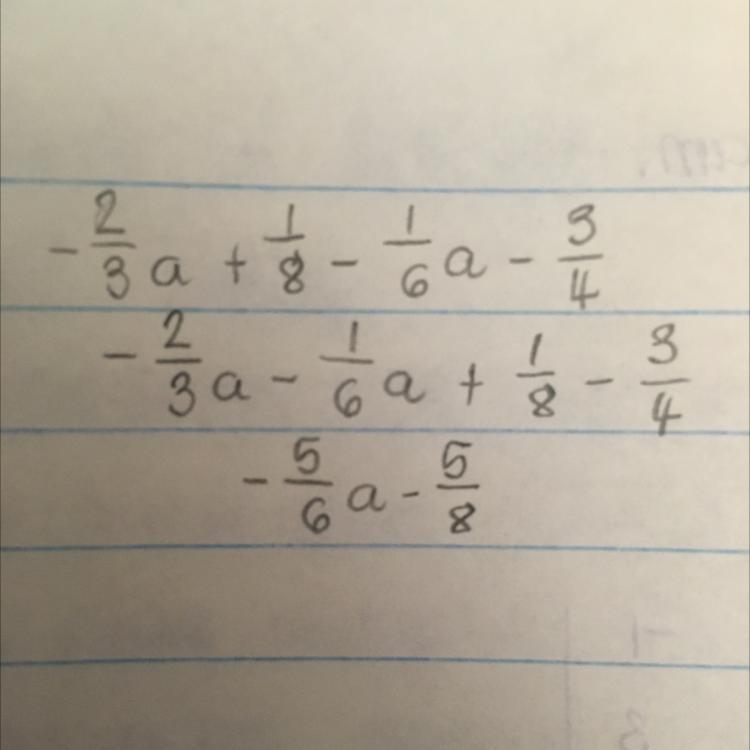 -2/3 a + 1/8 - 1/6 a - 3/4
-2/3 a - 1/6 a + 1/8 - 3/4
-5/6 a - 5/8